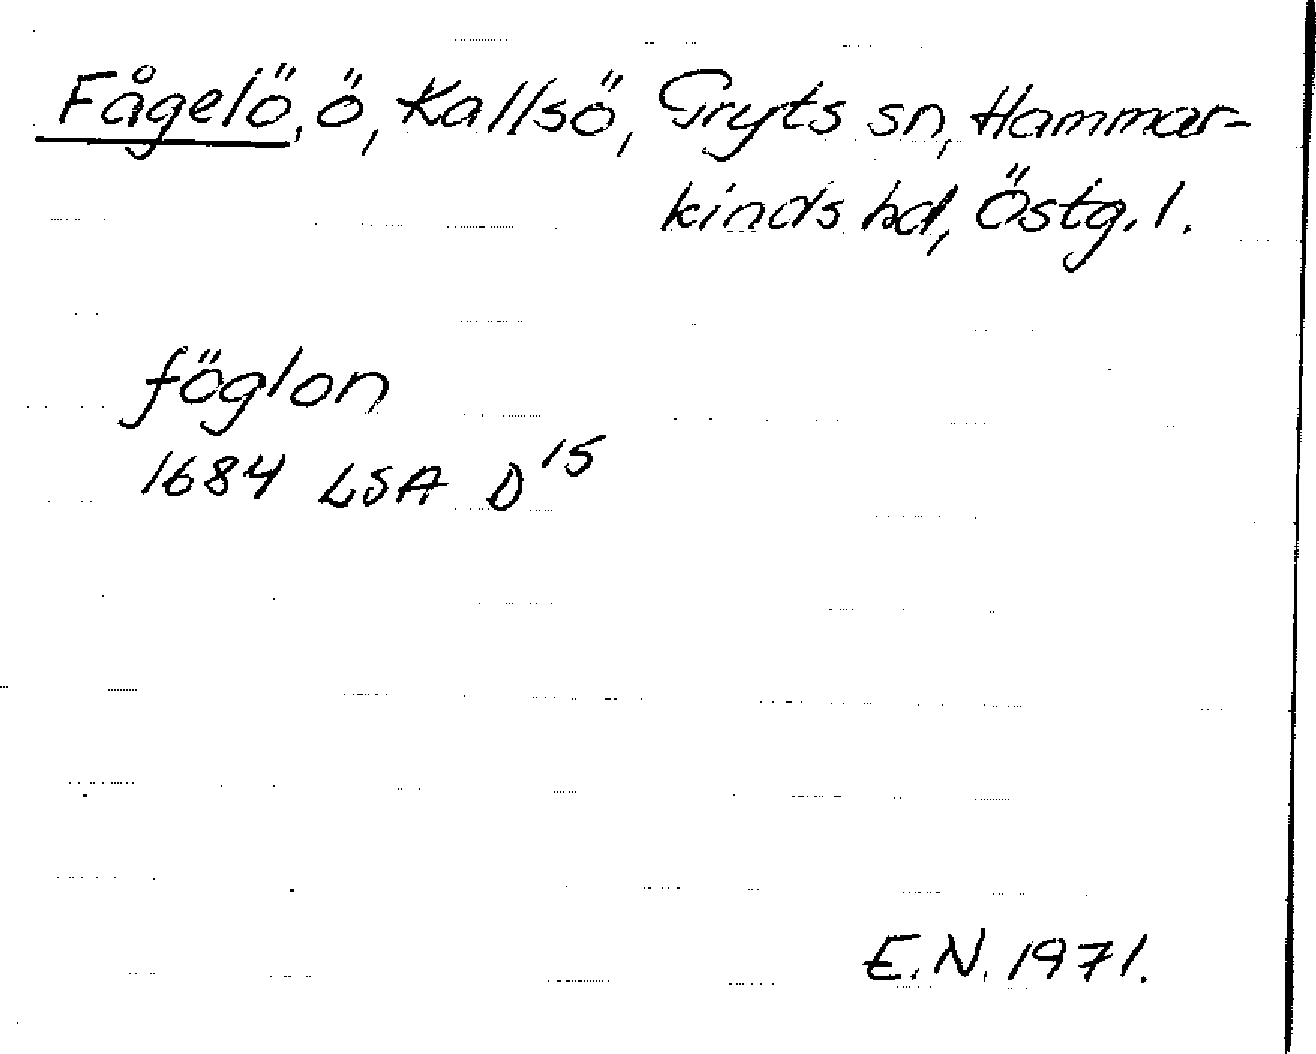 Fågelö, ö, Kallsö, Gryts sn, Hammar-
kinds hd, Östg. l.
föglon
1684 LSA D 15
E.N. 1971.